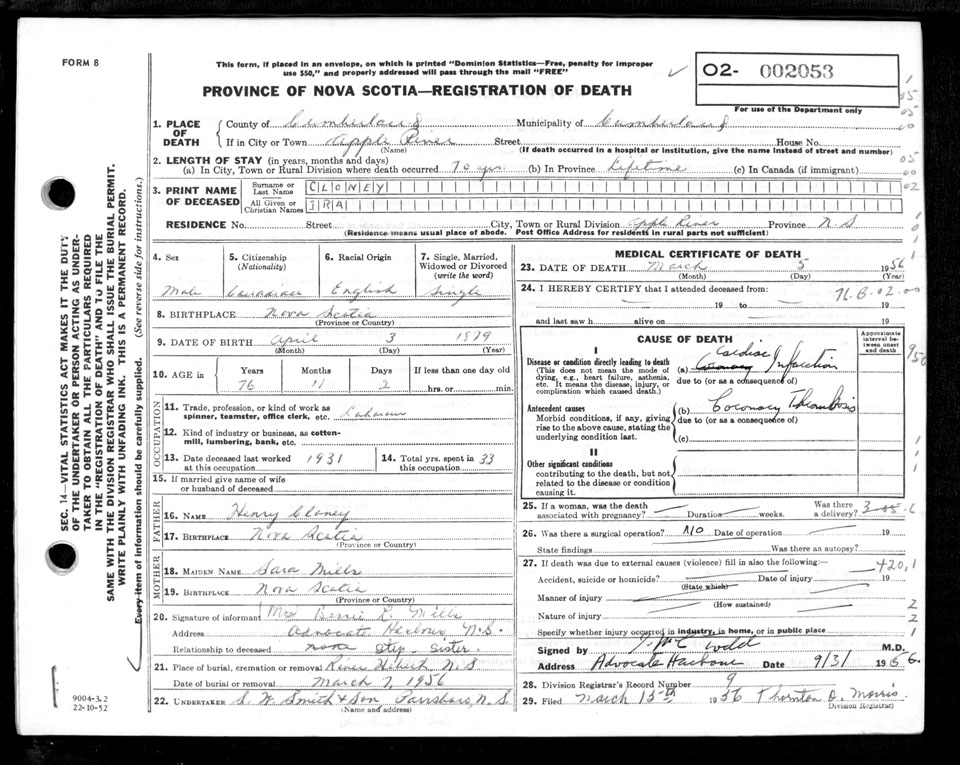 FORM 8
This form, if placed in an envelope, on which is printed "Dominion Statistics—Free, penalty for improper
use $50," and properly addressed will pass through the mail "FREE"
✓
O2- 002053
For use of the Department only
PROVINCE OF NOVA SCOTIA—REGISTRATION OF DEATH
1. PLACE OF DEATH { County of Cumberland Municipality of Cumberland
If in City or Town Apple River Street House No.
(Name) (If death occurred in a hospital or institution, give the name instead of street and number)
2. LENGTH OF STAY (in years, months and days)
(a) In City, Town or Rural Division where death occurred 70 yrs (b) In Province Lifetime (c) In Canada (if immigrant)
3. PRINT NAME OF DECEASED { Surname or Last Name CLONEY
All Given or Christian Names IRA
RESIDENCE No. Street City, Town or Rural Division Apple River Province N.S
(Residence means usual place of abode. Post Office Address for residents in rural parts not sufficient)
4. Sex 5. Citizenship (Nationality) 6. Racial Origin 7. Single, Married, Widowed or Divorced (write the word)
Male Canadian English Single
8. BIRTHPLACE Nova Scotia
(Province or Country)
9. DATE OF BIRTH April 3 1879
(Month) (Day) (Year)
10. AGE in { Years Months Days If less than one day old
76 11 2 hrs. or min.
OCCUPATION
11. Trade, profession, or kind of work as spinner, teamster, office clerk, etc. Laborer
12. Kind of industry or business, as cotton-mill, lumbering, bank, etc.
13. Date deceased last worked at this occupation 1931 14. Total yrs. spent in this occupation 33
15. If married give name of wife or husband of deceased
FATHER
16. NAME Henry Cloney
17. BIRTHPLACE Nova Scotia
(Province or Country)
MOTHER
18. MAIDEN NAME Sara Mills
19. BIRTHPLACE Nova Scotia
(Province or Country)
20. Signature of informant Mrs L. Mills
Address Advocate Harbour N.S.
Relationship to deceased step-sister
21. Place of burial, cremation or removal River Hebert N.S
Date of burial or removal March 7, 1956
22. UNDERTAKER S. W. Smith & Son Parrsboro, N.S.
(Name and address)
MEDICAL CERTIFICATE OF DEATH
23. DATE OF DEATH March 5 1956
(Month) (Day) (Year)
24. I HEREBY CERTIFY that I attended deceased from:
19 to 19
and last saw h alive on 19
N.B.-02-00
CAUSE OF DEATH
Approximate interval between onset and death
I
Disease or condition directly leading to death
(This does not mean the mode of dying, e.g., heart failure, asthenia, etc. It means the disease, injury, or complication which caused death.)
(a) Coronary Cardiac Infarction
due to (or as a consequence of)
Antecedent causes
Morbid conditions, if any, giving rise to the above cause, stating the underlying condition last.
(b) Coronary Thrombosis
due to (or as a consequence of)
(c)
II
Other significant conditions
contributing to the death, but not related to the disease or condition causing it.
25. If a woman, was the death associated with pregnancy? Duration weeks. Was there a delivery?
26. Was there a surgical operation? NO Date of operation 19
State findings Was there an autopsy?
27. If death was due to external causes (violence) fill in also the following:— 420,1
Accident, suicide or homicide? Date of injury 19
(State which)
Manner of injury
(How sustained)
Nature of injury
Specify whether injury occurred in industry, in home, or in public place
Signed by Todd M.D.
Address Advocate Harbour Date 9/3/ 1956.
28. Division Registrar's Record Number 9
29. Filed March 15th 1956 Thornton O. Morris.
Division Registrar)
SEC. 14—VITAL STATISTICS ACT MAKES IT THE DUTY
OF THE UNDERTAKER OR PERSON ACTING AS UNDER-
TAKER TO OBTAIN ALL THE PARTICULARS REQUIRED
IN THE "REGISTRATION OF DEATH" AND TO FILE THE
SAME WITH THE DIVISION REGISTRAR WHO SHALL ISSUE THE BURIAL PERMIT.
WRITE PLAINLY WITH UNFADING INK. THIS IS A PERMANENT RECORD.
Every item of information should be carefully supplied. (See reverse side for instructions.)
9004-3.2
22-10-52